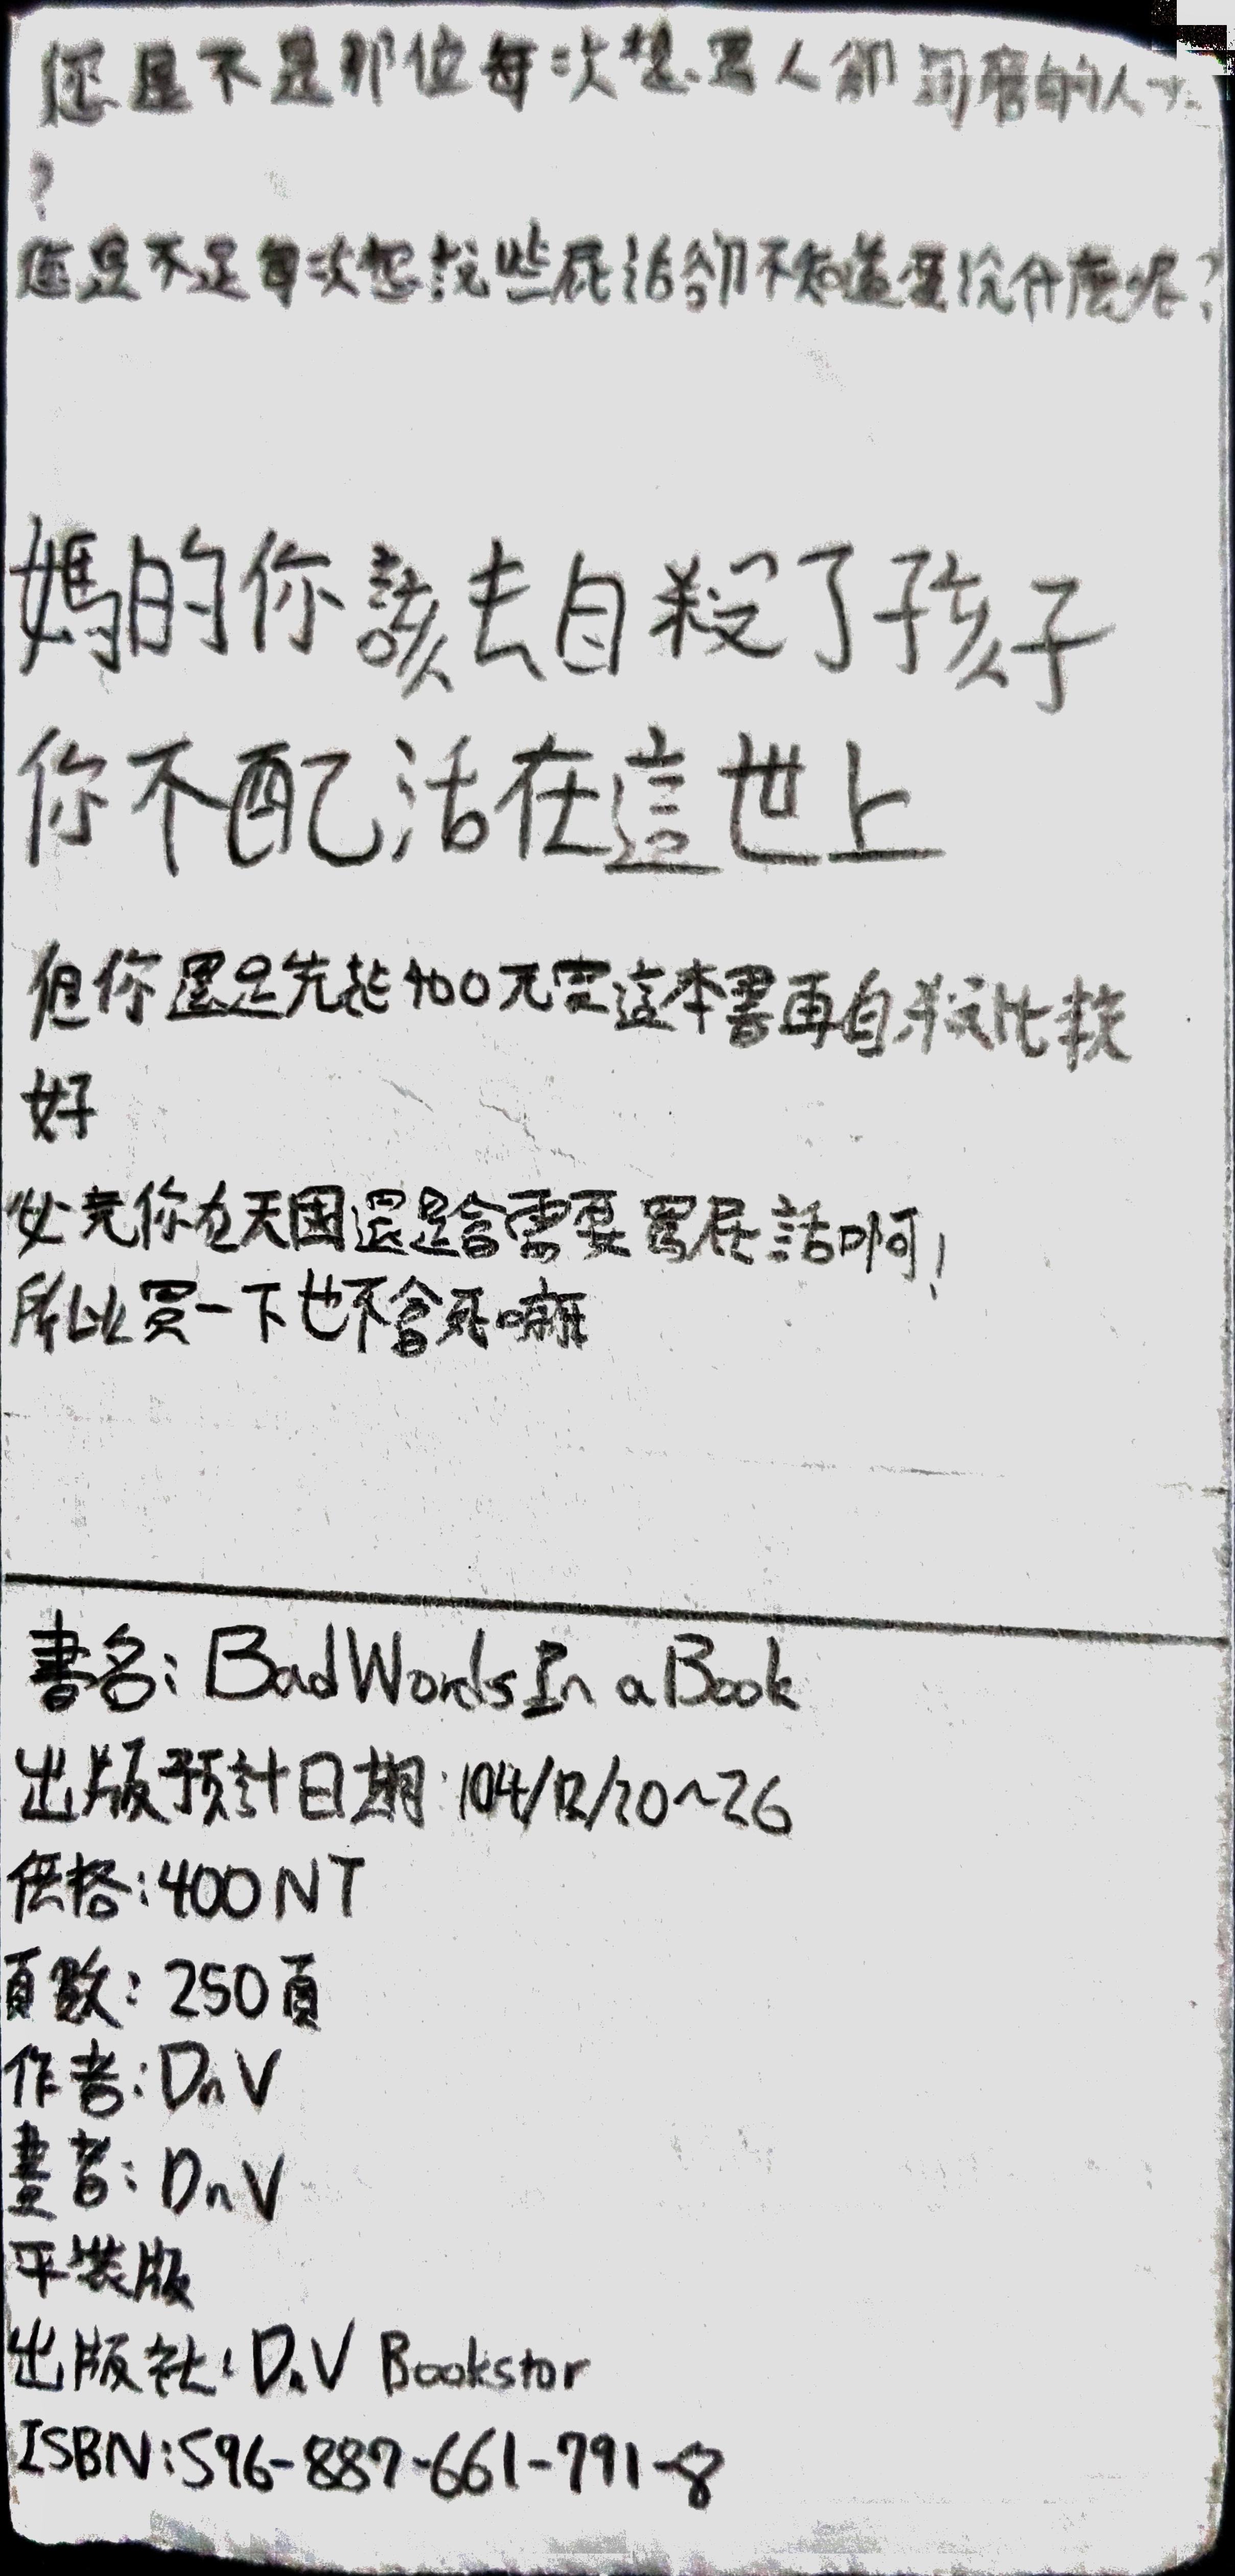 您是不是那位每次想罵人卻詞窮的人
?
您是不是每次想找些屁話卻不知道要說什麼呢?
媽的你該去自殺了孩子
你不配活在這世上
但你還是先花400元買這本書再自殺比較
好
必竟你在天國還是會需要罵屁話啊!
所以買一下也不會死嘛
書名:BadWords In a Book
出版預計日期:104/12/20~26
價格:400NT
頁數:250頁
作者:DnV
畫者:DnV
平裝版
出版社:DnV Bookstor
ISBN:596-887-661-791-8